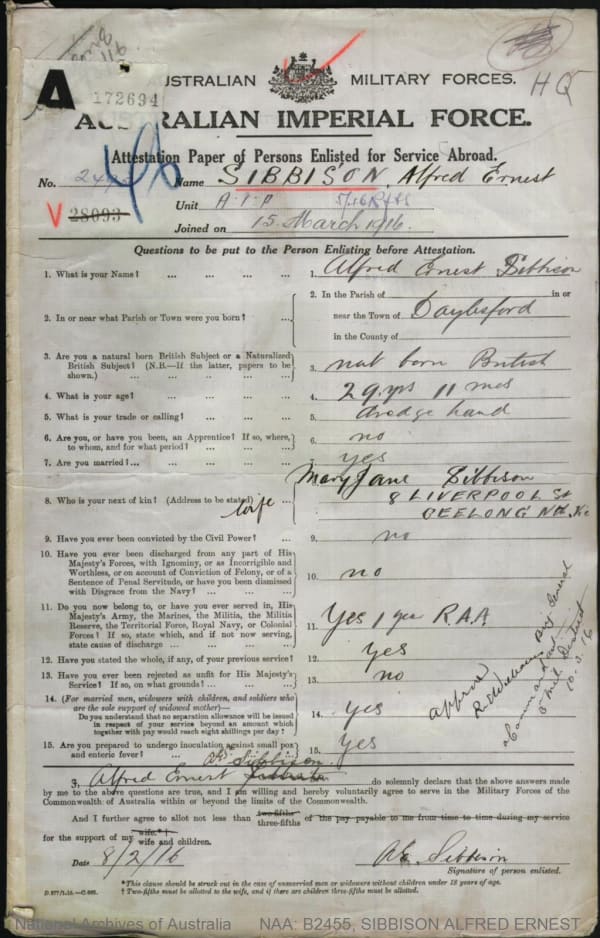 A
172694
AUSTRALIAN MILITARY FORCES.
H Q
AUSTRALIAN IMPERIAL FORCE.
Attestation Paper of Persons Enlisted for Service Abroad.
No. Name SIBBISON, Alfred Ernest
V 28093 Unit A.I.F.
Joined on 15 March 1916.
Questions to be put to the Person Enlisting before Attestation.
1. What is your Name? ... ... ... ... 1. Alfred Ernest Sibbison
2. In or near what Parish or Town were you born? ... 2. In the Parish of in or
near the Town of Daylesford
in the County of
3. Are you a natural born British Subject or a Naturalized
British Subject? (N.B.—If the latter, papers to be
shown.) ... ... ... ... 3. nat born British
4. What is your age? ... ... ... ... 4. 29 yrs 11 mos
5. What is your trade or calling? ... ... ... 5. dredge hand
6. Are you, or have you been, an Apprentice? If so, where,
to whom, and for what period? ... ... ... 6. no
7. Are you married?... ... ... ... ... 7. yes
8. Who is your next of kin? (Address to be stated) ... wife Mary Jane Sibbison
8 LIVERPOOL St
GEELONG Nth Vic
9. Have you ever been convicted by the Civil Power? ... 9. no
10. Have you ever been discharged from any part of His
Majesty's Forces, with Ignominy, or as Incorrigible and
Worthless, or on account of Conviction of Felony, or of a
Sentence of Penal Servitude, or have you been dismissed
with Disgrace from the Navy? ... ... ... 10. no
11. Do you now belong to, or have you ever served in, His
Majesty's Army, the Marines, the Militia, the Militia
Reserve, the Territorial Force, Royal Navy, or Colonial
Forces? If so, state which, and if not now serving,
state cause of discharge ... ... ... ... 11. Yes 1 year R.A.A.
12. Have you stated the whole, if any, of your previous service? 12. yes
13. Have you ever been rejected as unfit for His Majesty's
Service? If so, on what grounds? ... ... ... 13. no
14. (For married men, widowers with children, and soldiers who
are the sole support of widowed mother)—
Do you understand that no separation allowance will be issued
in respect of your service beyond an amount which
together with pay would reach eight shillings per day? 14. yes
15. Are you prepared to undergo inoculation against small pox
and enteric fever? ... ... 15. yes
approved
Brig General
Commandant
3 Mil District
10.3.16
AE Sibbison.
I, Alfred Ernest Sibbison do solemnly declare that the above answers made
by me to the above questions are true, and I am willing and hereby voluntarily agree to serve in the Military Forces of the
Commonwealth of Australia within or beyond the limits of the Commonwealth.
And I further agree to allot not less than two-fifths three-fifths of the pay payable to me from time to time during my service
for the support of my wife.*† wife and children.
Date 8/2/16 AE Sibbison
Signature of person enlisted.
D.977/1.15.—C.668. *This clause should be struck out in the case of unmarried men or widowers without children under 18 years of age.
† Two-fifths must be allotted to the wife, and if there are children three-fifths must be allotted.
National Archives of Australia NAA: B2455, SIBBISON ALFRED ERNEST